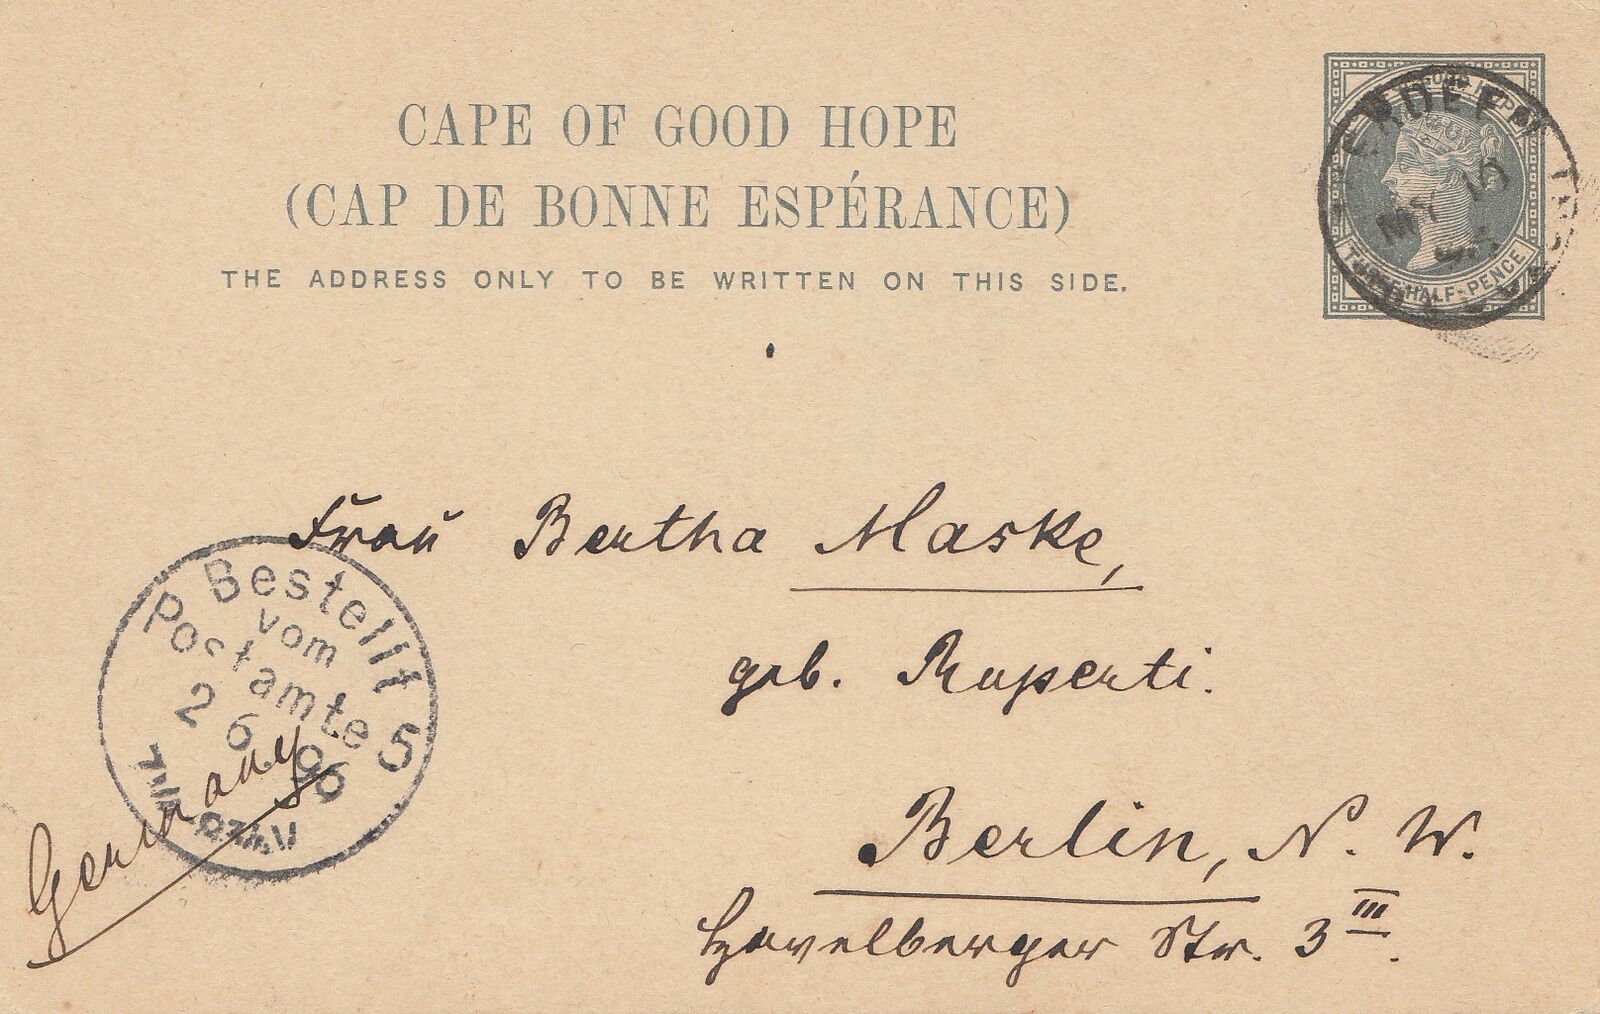 CAPE OF GOOD HOPE
(CAP DE BONNE ESPÉRANCE)
THE ADDRESS ONLY TO BE WRITTEN ON THIS SIDE.
GOOD HOPE
MY 10
THREE HALF-PENCE
Frau Bertha Maske,
geb. Ruperti.
Berlin, N. W.
Havelberger Str. 3 III.
Germany
Bestellt
vom
Postamte 5
2 6 96